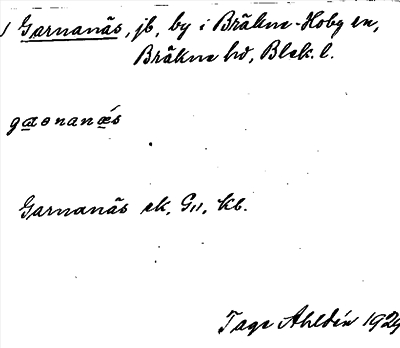 Garnanäs, jb, by i Bräkne-Hoby sn,
Bräkne hd, Blek. l.
Garnanäs ek, G11, kb.
Tage Ahldén 1929